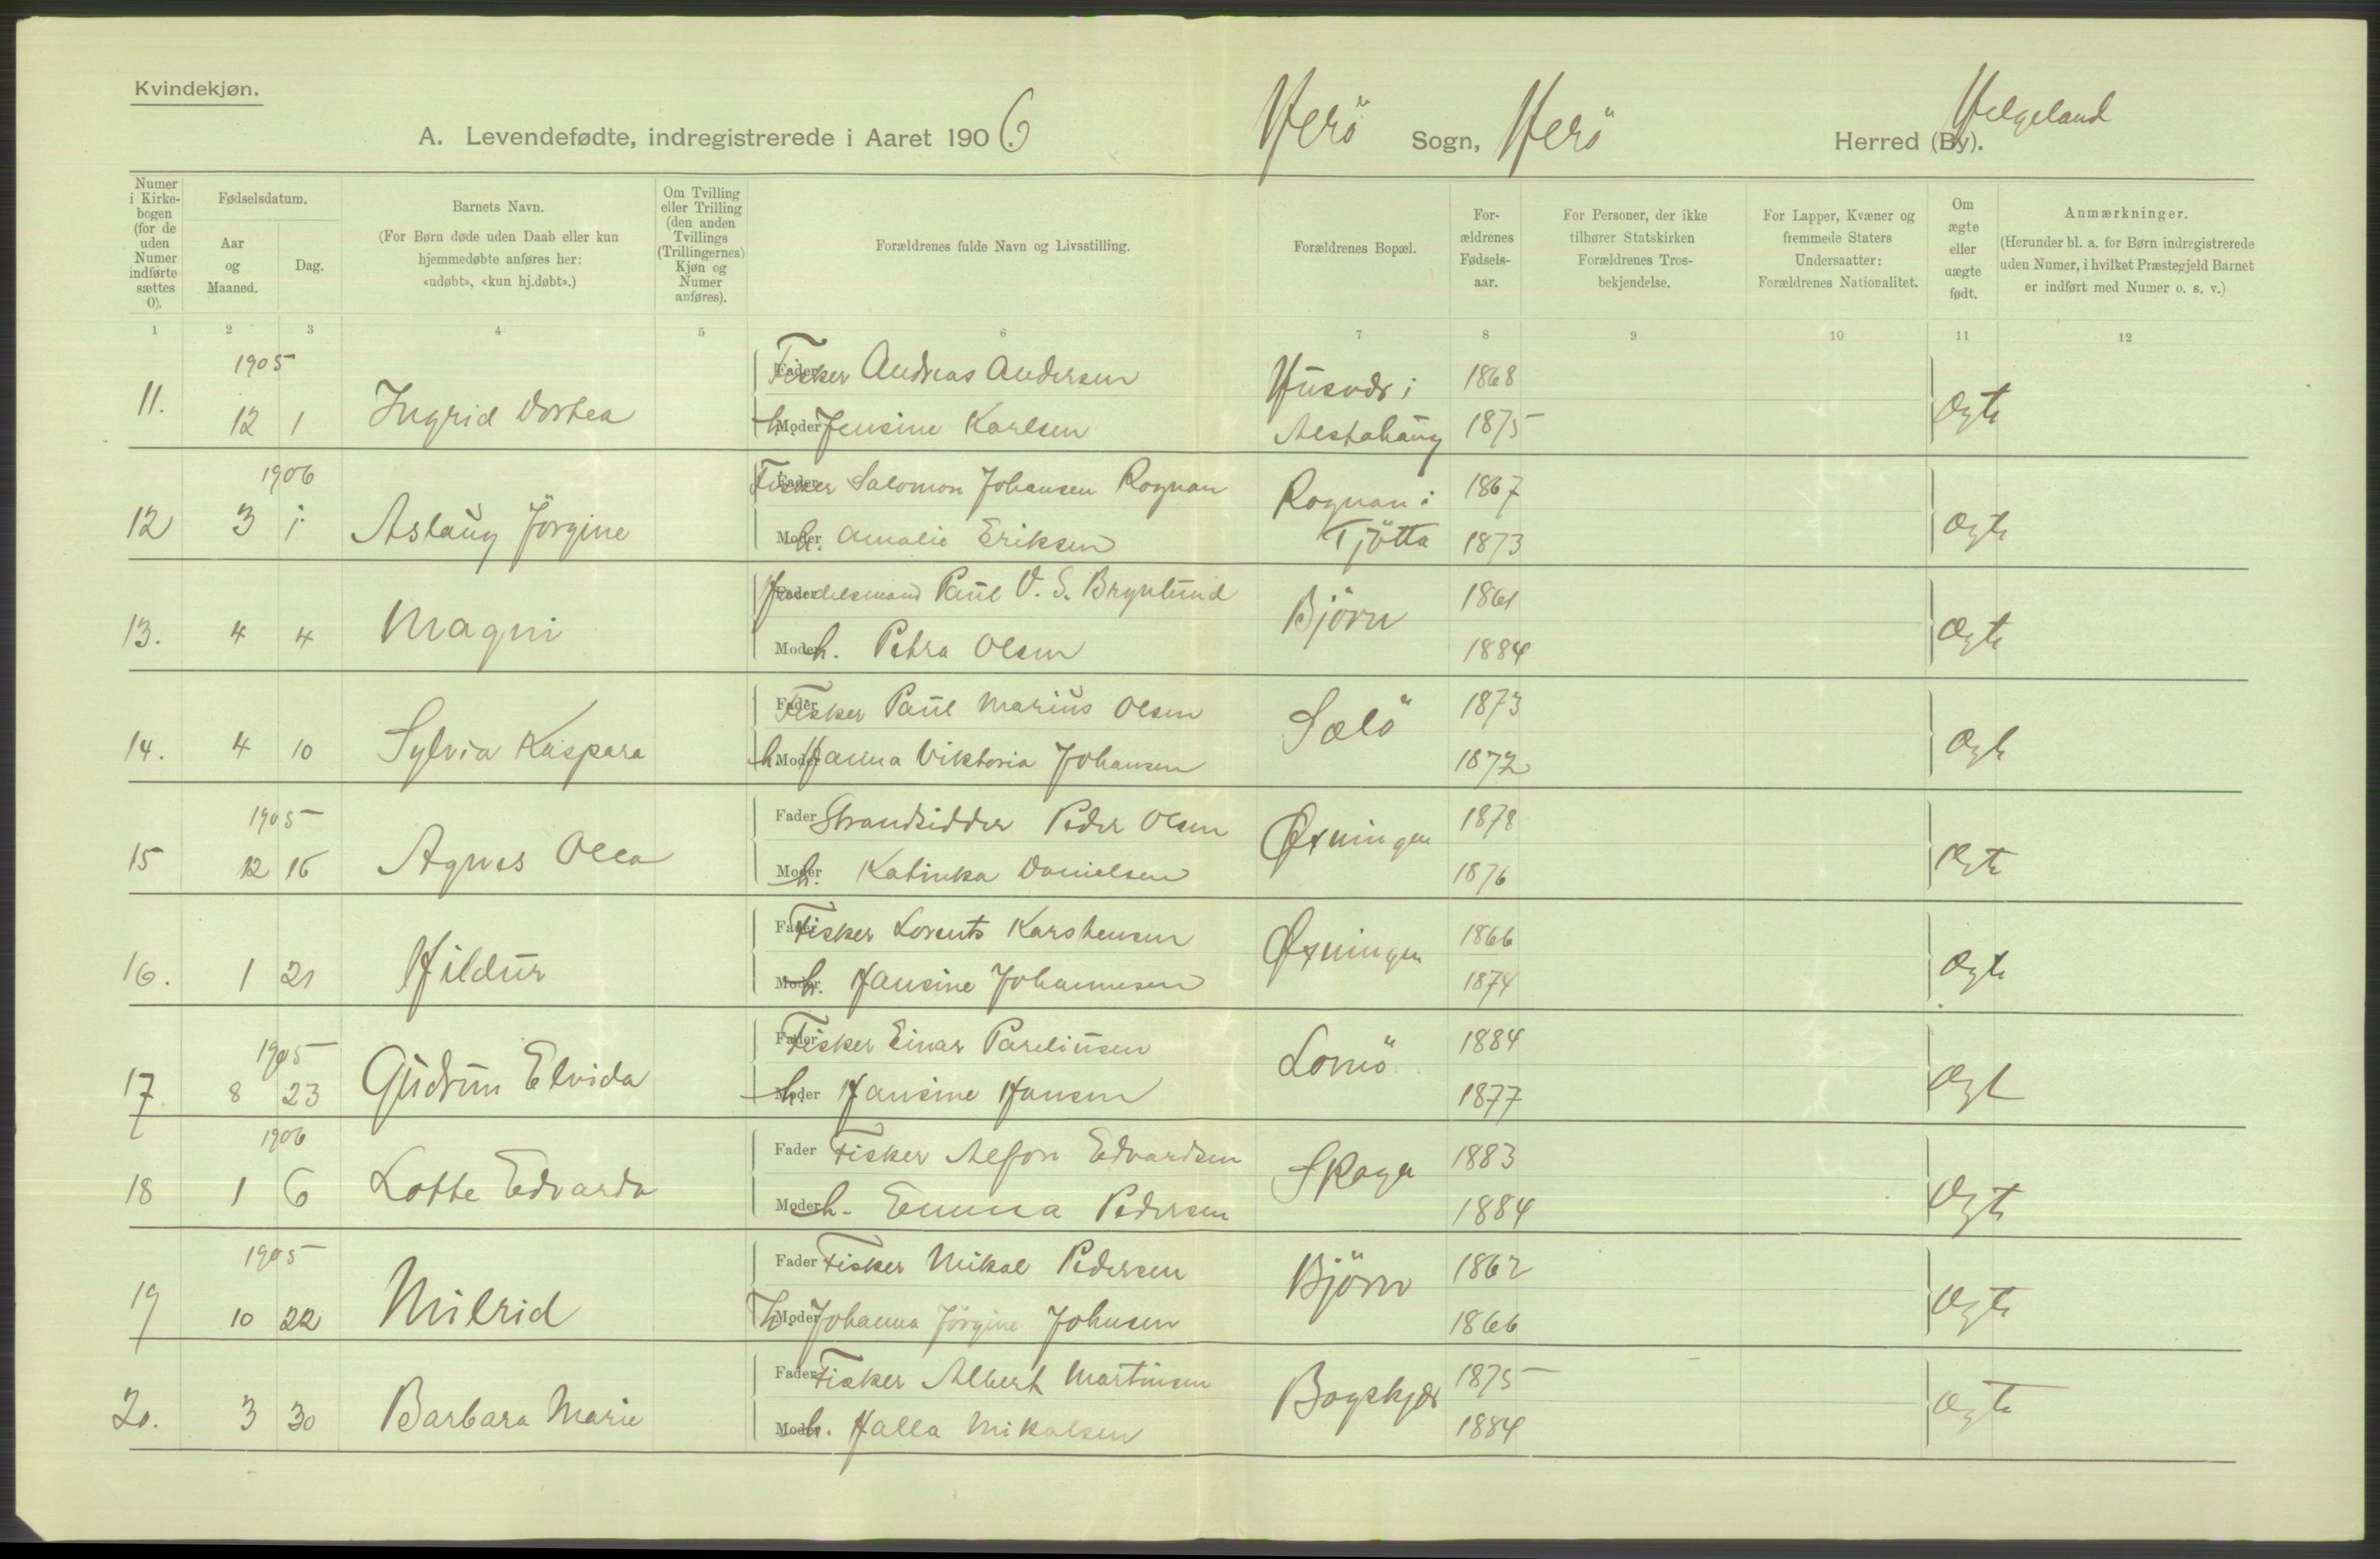 Kvindekjøn.
A. Levendefødte, indregistrerede i Aaret 1906. Herö Sogn, Herö Herred (By). Helgeland
Numer i Kirke-bogen (for de uden Numer indførte sættes 0).
Fødselsdatum.
Aar og Maaned.
Dag.
Barnets Navn.
(For Børn døde uden Daab eller kun hjemmedøbte anføres her: «udøbt», «kun hj.døbt».)
Om Tvilling eller Trilling (den anden Tvillings (Trillingernes) Kjøn og Numer anføres).
Forældrenes fulde Navn og Livsstilling.
Forældrenes Bopæl.
For-ældrenes Fødsels-aar.
For Personer, der ikke tilhører Statskirken Forældrenes Tros-bekjendelse.
For Lapper, Kvæner og fremmede Staters Undersaatter: Forældrenes Nationalitet.
Om ægte eller uægte født.
Anmærkninger.
(Herunder bl. a. for Børn indregistrerede uden Numer, i hvilket Præstegjeld Barnet er indført med Numer o. s. v.)
1 2 3 4 5 6 7 8 9 10 11 12
1905 Fader Fisker Andreas Andersen Husvær i 1868
11. 12 1 Ingrid Dorthea Moder h. Jensine Karlsen Alstahaug 1875 Ægte
1906 Fader Fisker Salomon Johansen Rognan Rognan i 1867
12 3 1. Aslaug Jörgine Moder h. Amalie Eriksen Tjötta 1873 Ægte
Fader Handelsmand Paul V. S. Brynlund Björn 1861
13. 4 4 Magni Moder h. Petra Olsen 1884 Ægte
Fader Fisker Paul Marius Olsen Salö 1873
14. 4 10 Sylvia Kaspara Moder h. Hanna Viktoria Johansen 1872 Ægte
1905 Fader Strandsidder Peder Olsen Øxningen 1878
15 12 16 Agnes Olea Moder h. Katinka Danielsen 1876 Ægte
Fader Fisker Lorents Karstensen Øxningen 1866
16. 1 21 Hildur Moder h. Hansine Johannesen 1874 Ægte
1905 Fader Fisker Einar Pareliusen Lomö 1884
17 8 23 Gudrun Elvida Moder h. Hansine Hansen 1877 Ægte
1906 Fader Fisker Alfon Edvardsen Skaga 1883
18 1 6 Lotte Edvarda Moder h. Emma Pedersen 1884 Ægte
1905 Fader Fisker Mikal Pedersen Björn 1862
19 10 22 Milrid Moder h. Johanna Jörgine Johnsen 1866 Ægte
Fader Fisker Albert Martinsen Bogskjær 1875
20. 3 30 Barbara Marie Moder h. Halla Mikalsen 1884 Ægte